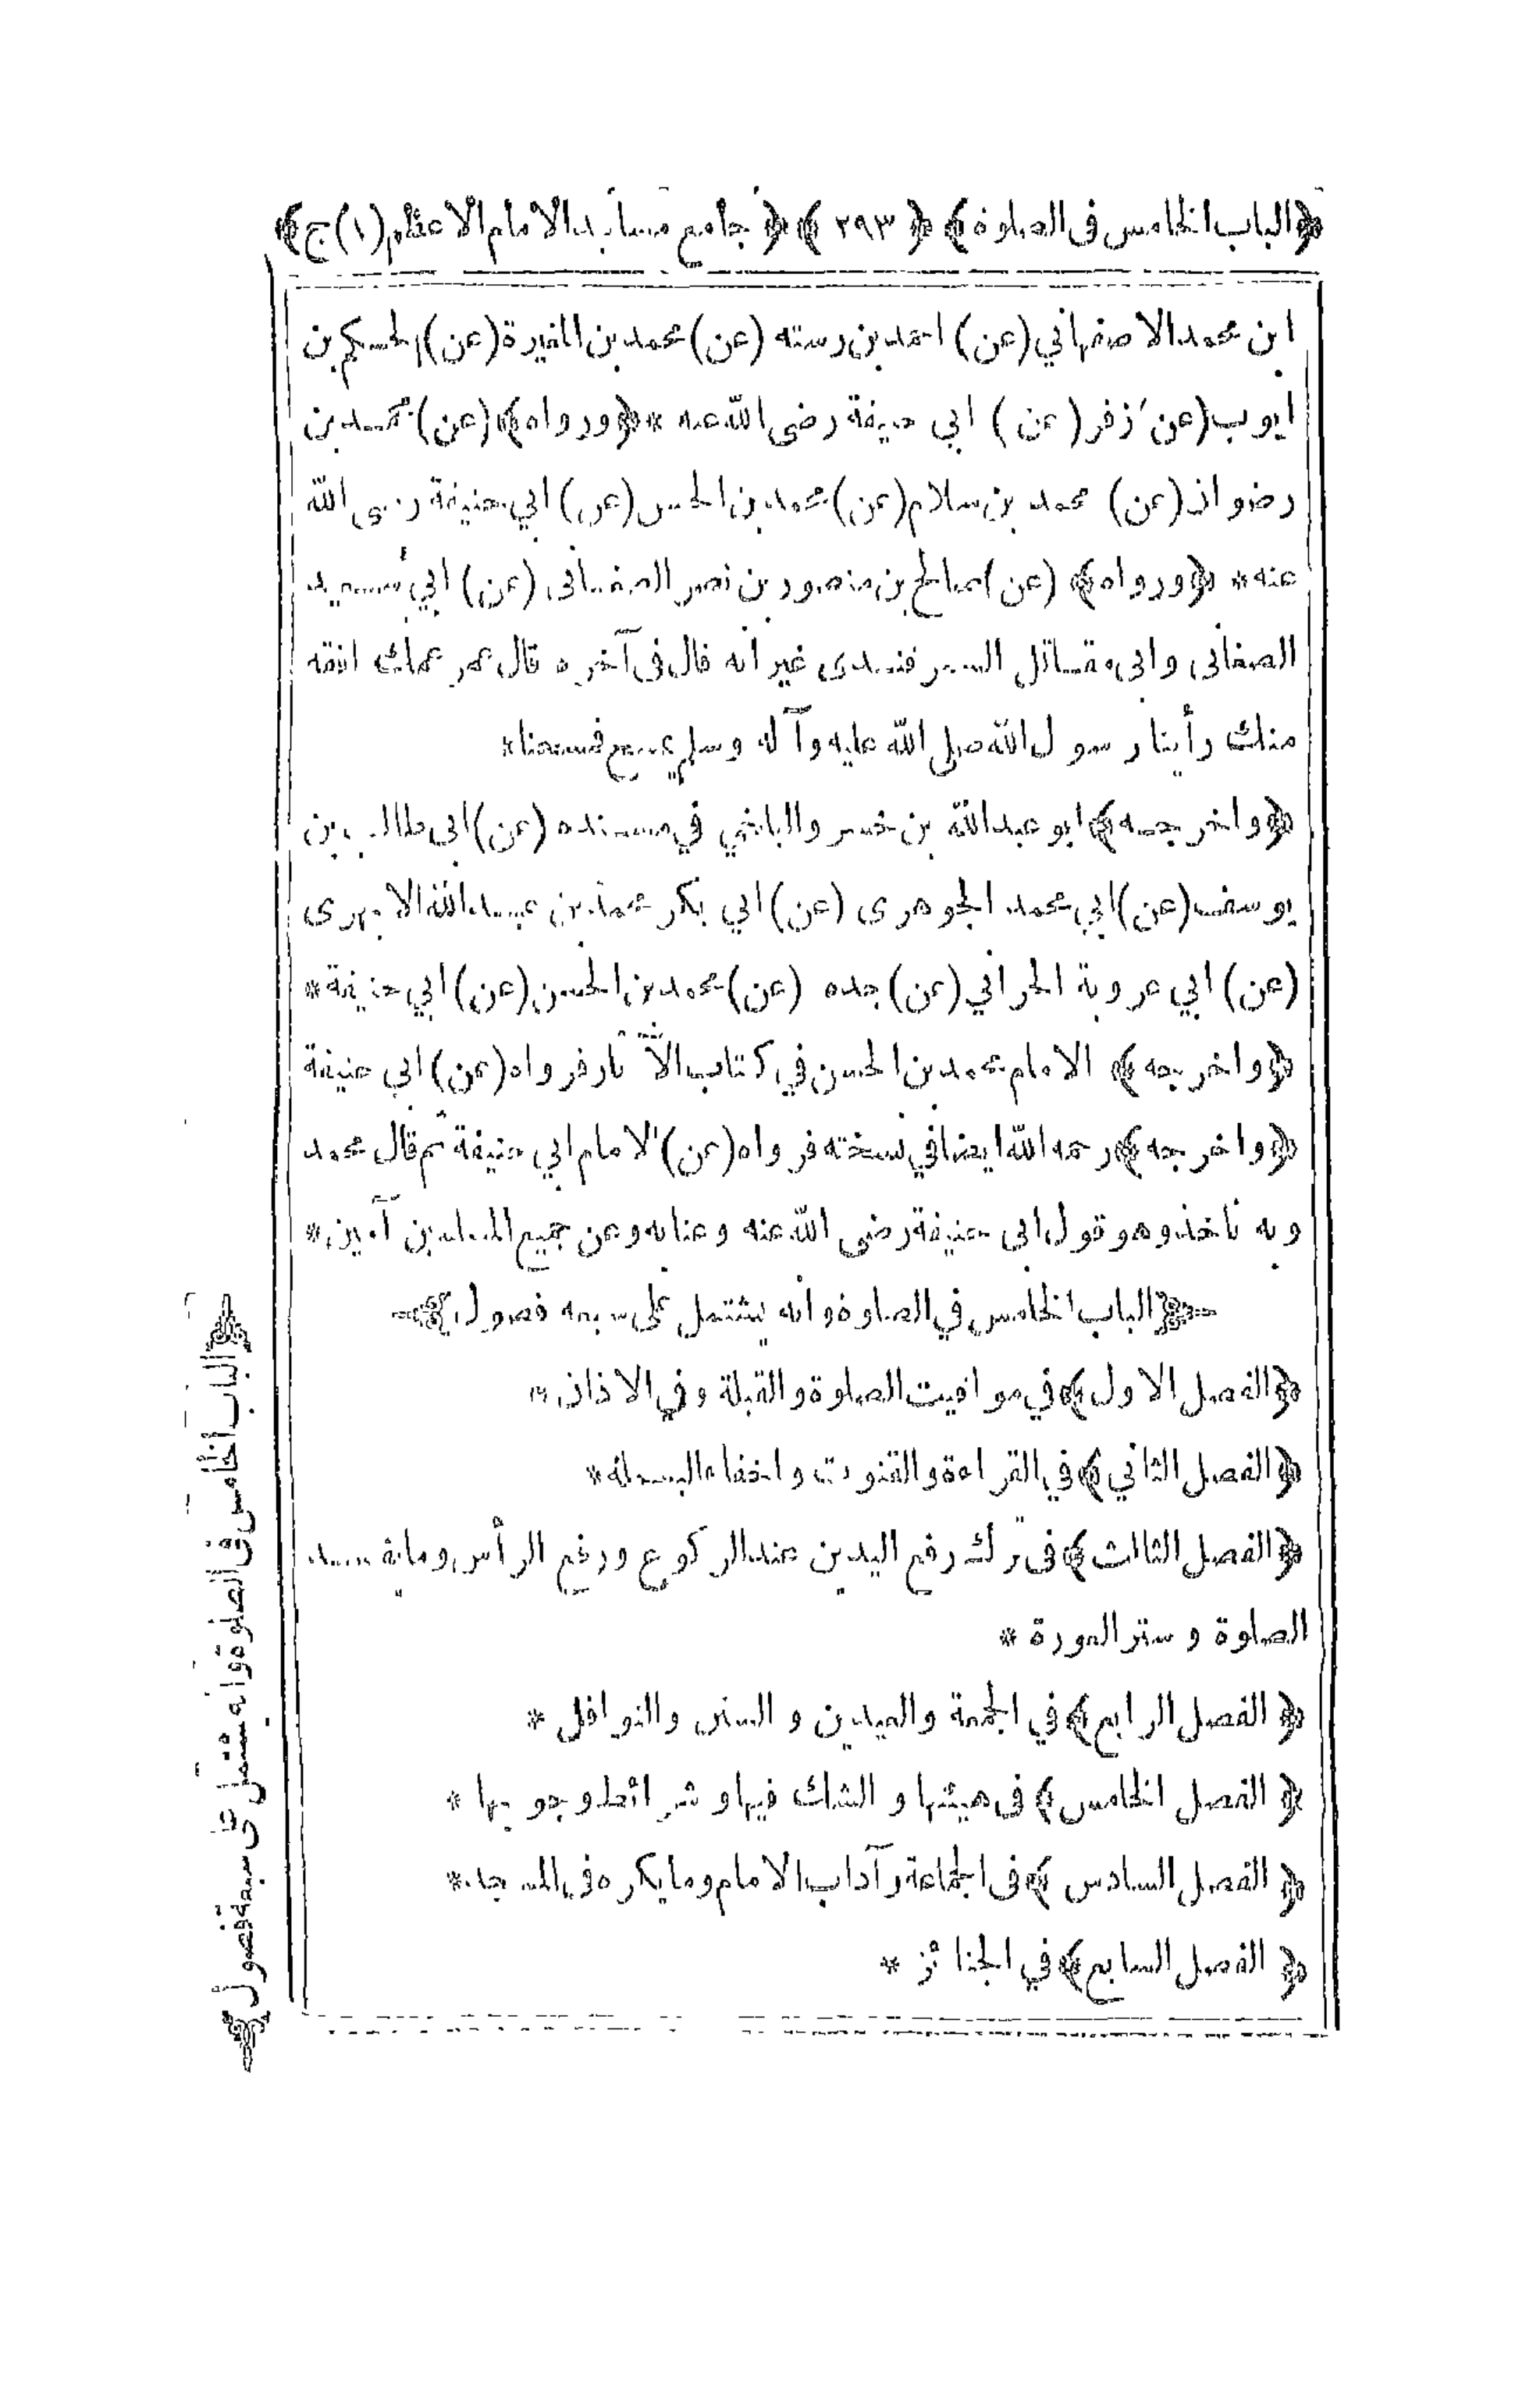 ﴿الباب الخامس فى الصلوة﴾ ﴿٢٩٣﴾ ﴿جامع مسانيد الامام الاعظم (١) ج﴾
ابن محمد الاصفهاني (عن) احمد بن رسته (عن) محمد بن المغيرة (عن) الحكم بن
ايوب (عن) زفر (عن) ابي حنيفة رضى الله عنه * ﴿ورواه﴾ (عن) محمد بن
رضوان (عن) محمد بن سلام (عن) محمد بن الحسن (عن) ابي حنيفة رضى الله
عنه * ﴿ورواه﴾ (عن) صالح بن منصور بن نصر الصغانى (عن) ابي سعيد
الصغانى وابى مقاتل السمرقندى غير انه قال فى آخره قال عمر عمك افقه
منك رأينا رسول الله صلى الله عليه وآله وسلم يمسح فمسحنا *
﴿واخرجه﴾ ابو عبد الله بن خسرو البلخي في مسنده (عن) ابى طالب بن
يوسف (عن) ابي محمد الجوهرى (عن) ابي بكر محمد بن عبد الله الابهرى
(عن) ابي عروبة الحراني (عن) جده (عن) محمد بن الحسن (عن) ابي حنيفة *
﴿واخرجه﴾ الامام محمد بن الحسن في كتاب الآثار فرواه (عن) ابي حنيفة
﴿واخرجه﴾ رحمه الله ايضا في نسخته فرواه (عن) الامام ابي حنيفة ثم قال محمد
وبه ناخذ وهو قول ابى حنيفة رضى الله عنه وعنا به وعن جميع المسلمين آمين *
﴿الباب الخامس في الصلوة وانه يشتمل على سبعه فصول﴾
﴿الفصل الاول﴾ في مواقيت الصلوة والقبلة وفي الاذان *
﴿الفصل الثاني﴾ في القراءة والقنوت واخفاء البسملة *
﴿الفصل الثالث﴾ فى ترك رفع اليدين عند الركوع ورفع الرأس وما يفسد
الصلوة و ستر العورة *
﴿الفصل الرابع﴾ في الجمعة والعيدين و السنن والنوافل *
﴿الفصل الخامس﴾ فى هيئتها و الشك فيها و شرائط وجوبها *
﴿الفصل السادس﴾ فى الجماعة وآداب الامام وما يكره فى المسجد *
﴿الفصل السابع﴾ في الجنائز *
﴿الباب الخامس فى الصلوة وانه يشتمل على سبعة فصول﴾